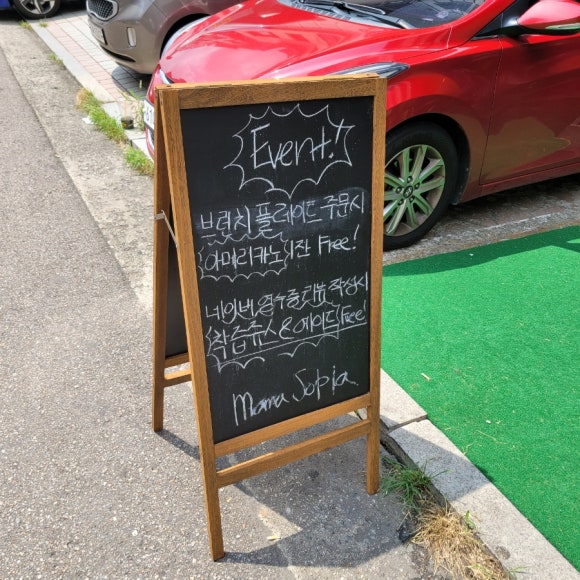 Event!
브런치 플레이트 주문시
아메리카노 1잔 Free!
네이버, 영수증 리뷰 작성시
착즙쥬스 & 에이드 Free!
Mama Sopia